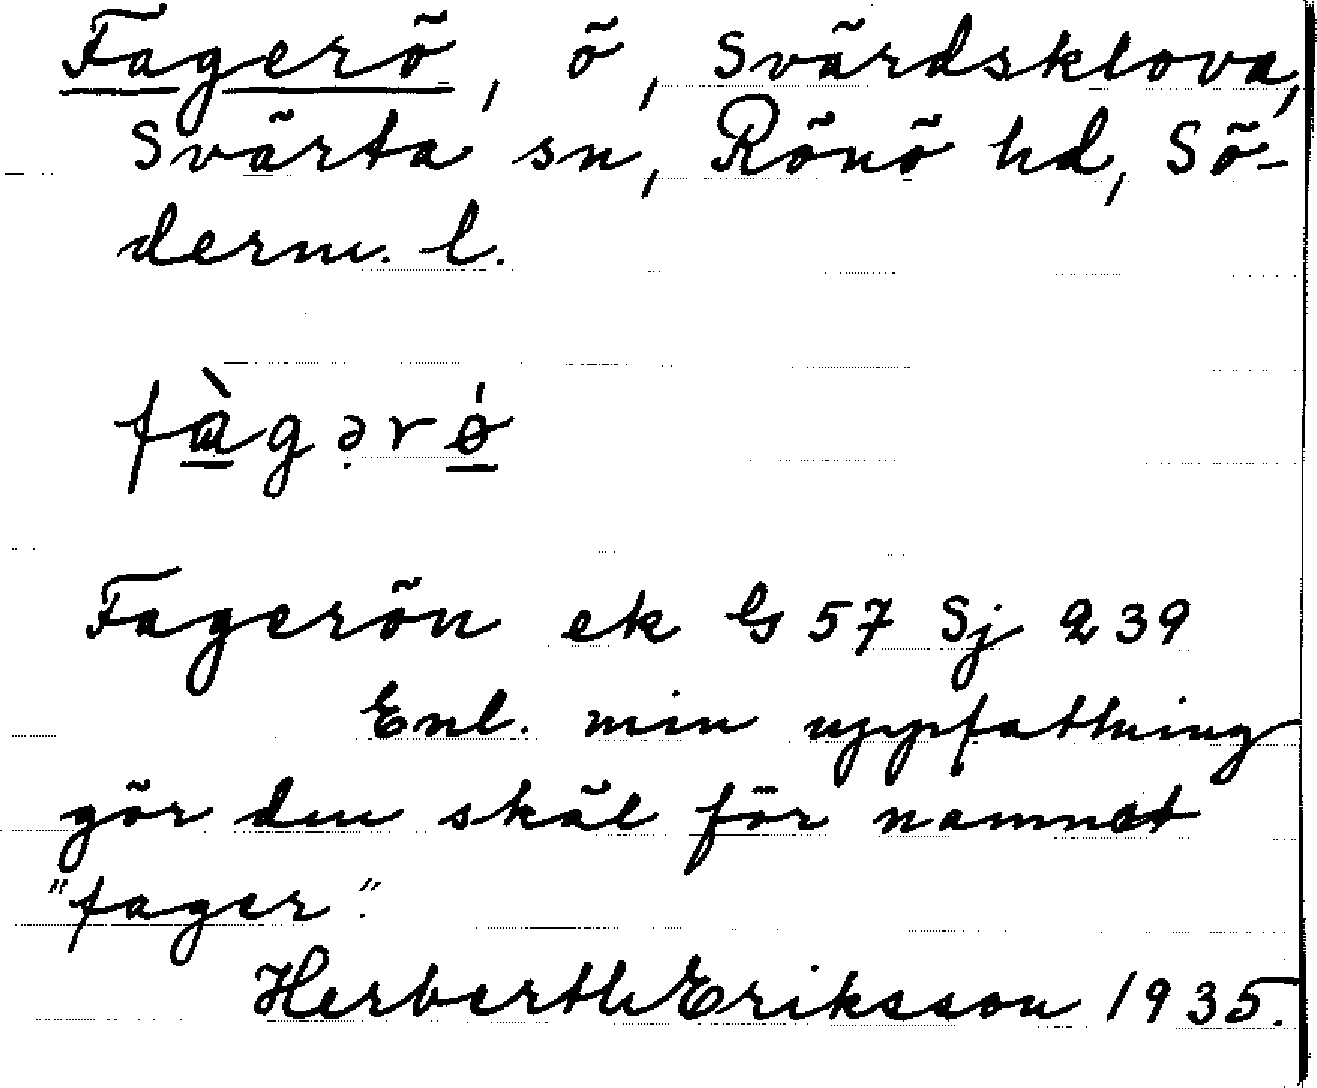 Fagerö, ö, Svärdsklova,
Svärta sn, Rönö hd, Sö-
derm. l.
fàgərǿ
Fagerön ek G 57 Sj 239
Enl. min uppfattning
gör den skäl för namnet
"fager".
Herberth Eriksson 1935.